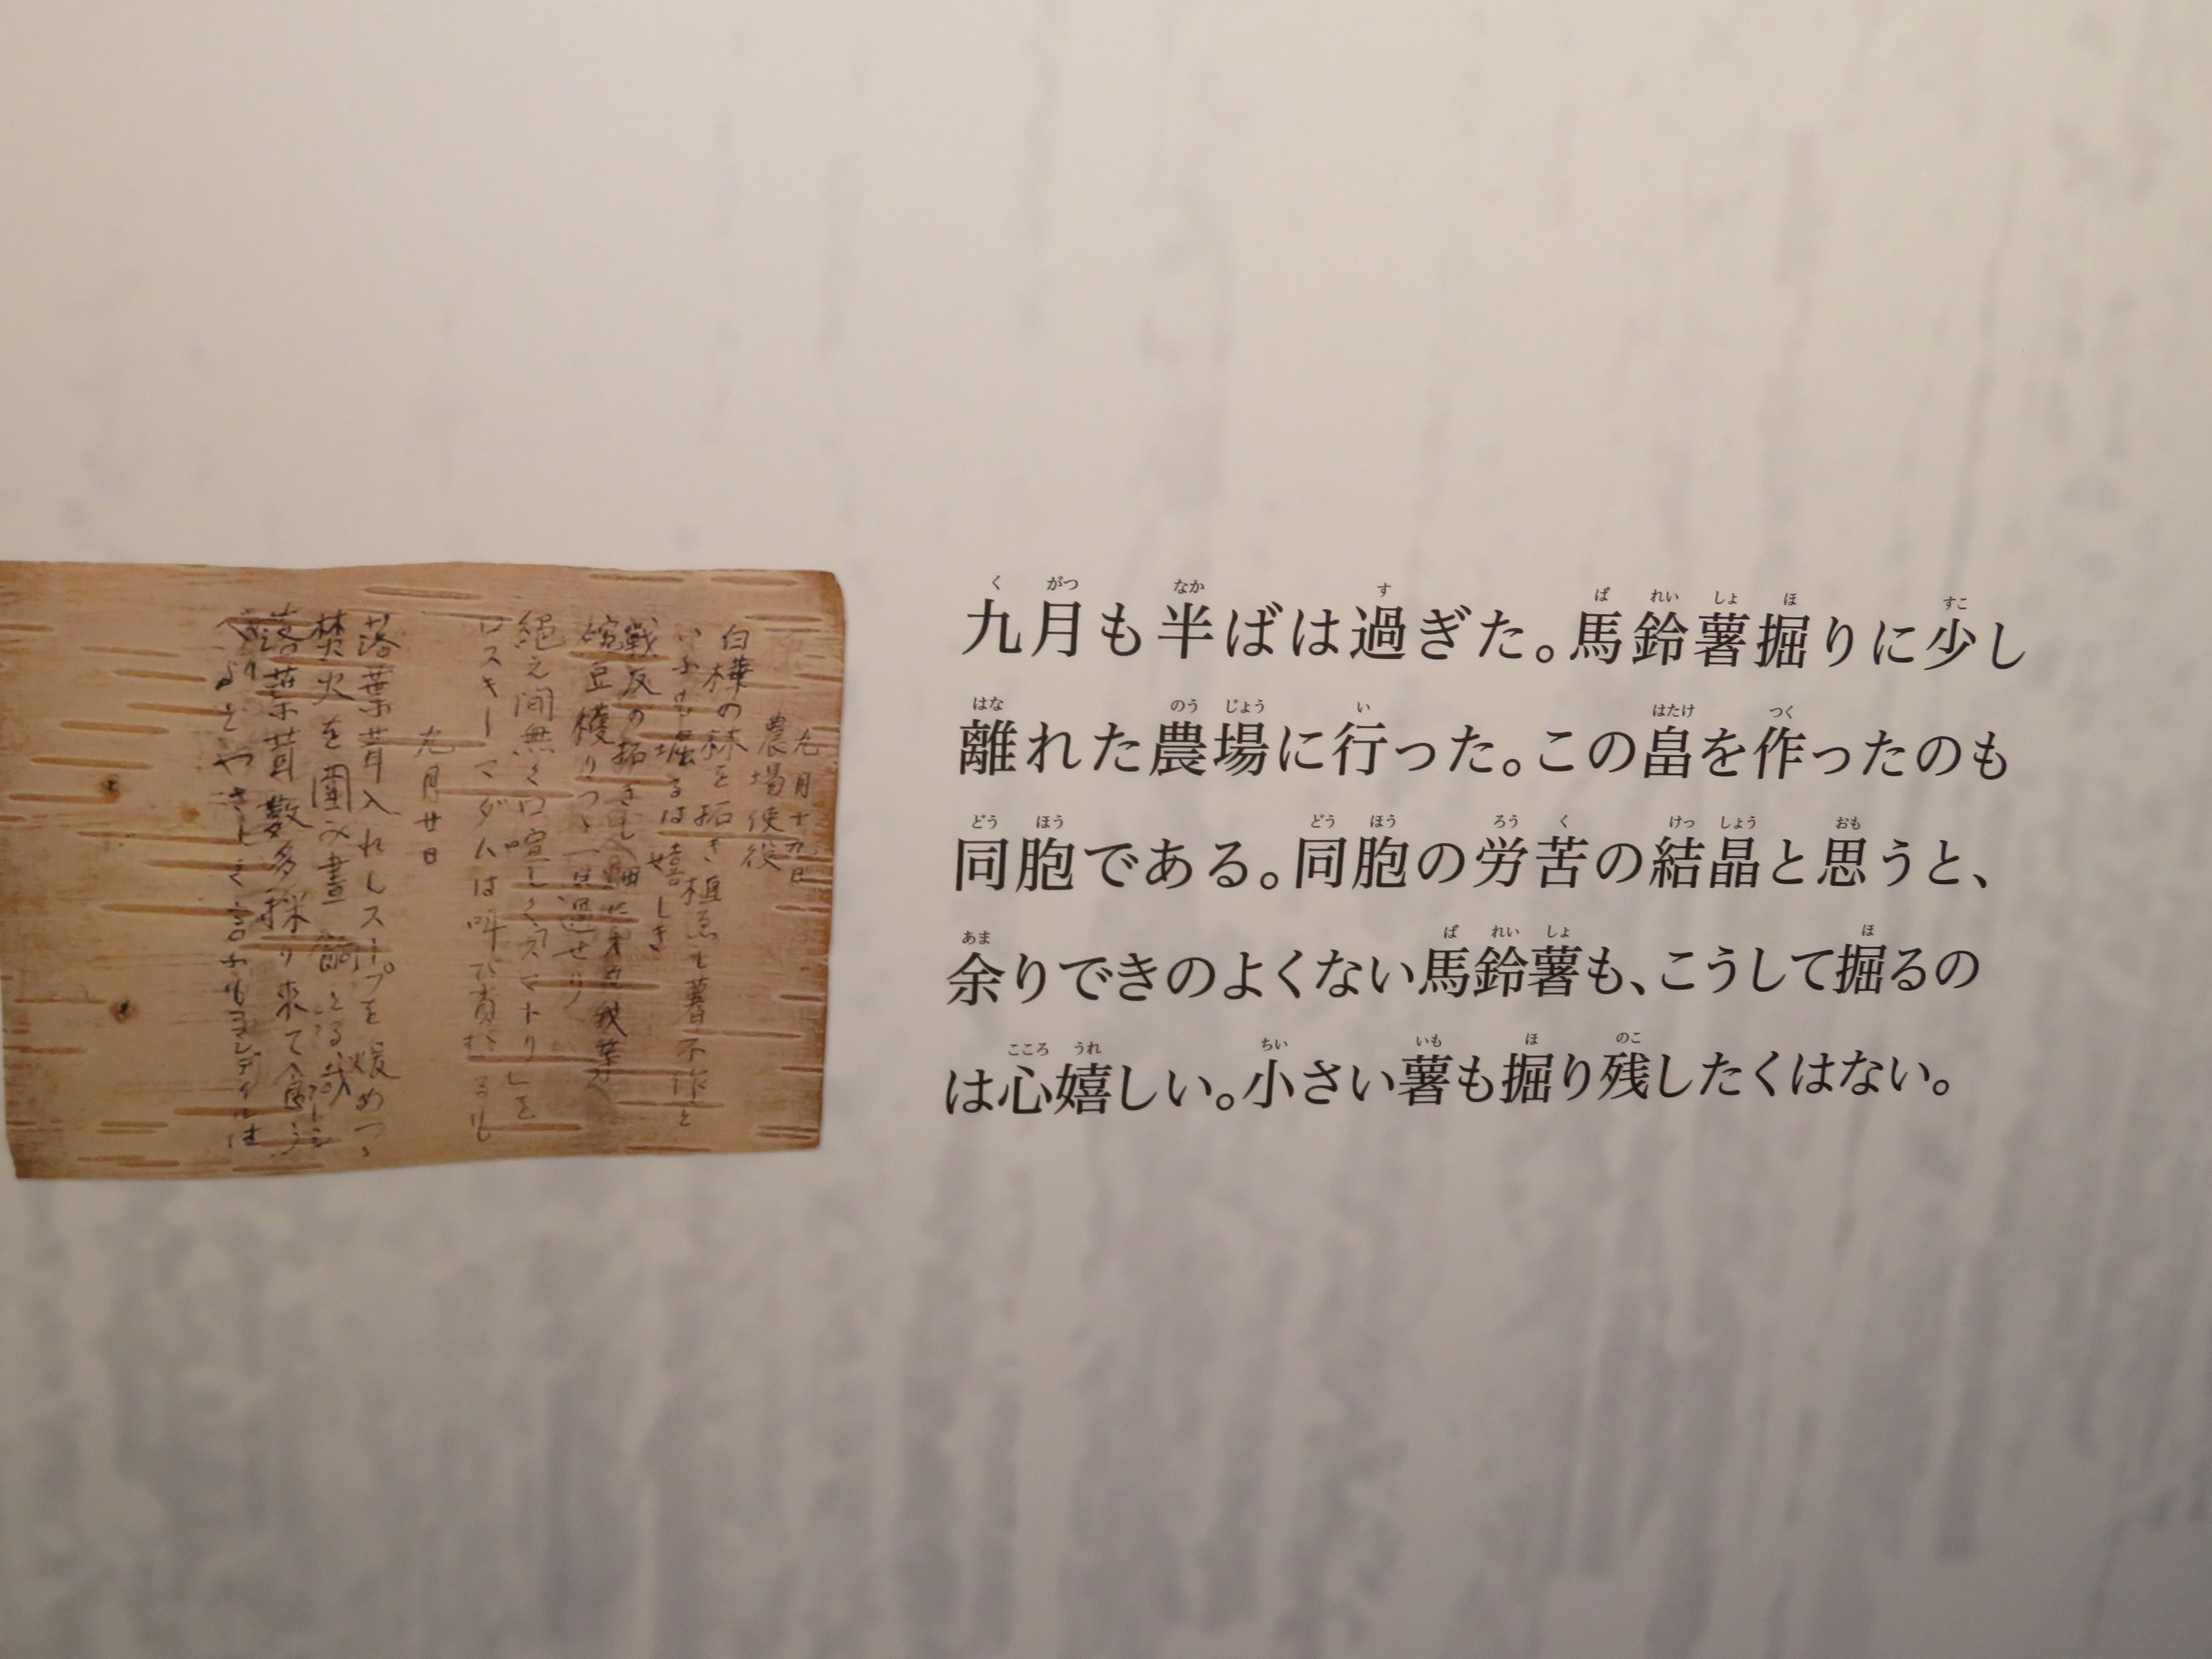 九月も半ばは過ぎた。馬鈴薯掘りに少し
離れた農場に行った。この畠を作ったのも
同胞である。同胞の労苦の結晶と思うと、
余りできのよくない馬鈴薯も、こうして掘るの
は心嬉しい。小さい薯も掘り残したくはない。
九月十九日
農場使役
白樺の林を拓き植ゑし薯不作と
いふも掘るは嬉しき
戦友の拓きし畑に
豌豆穫りつゝ一日過せり
絶え間無く口喧しく「スマトリ」を
ロスキーマダムは叫び
九月廿日
落葉茸入れしスープを煖めつゝ
焚火を圍み晝餉とる
落葉茸数多採り来て